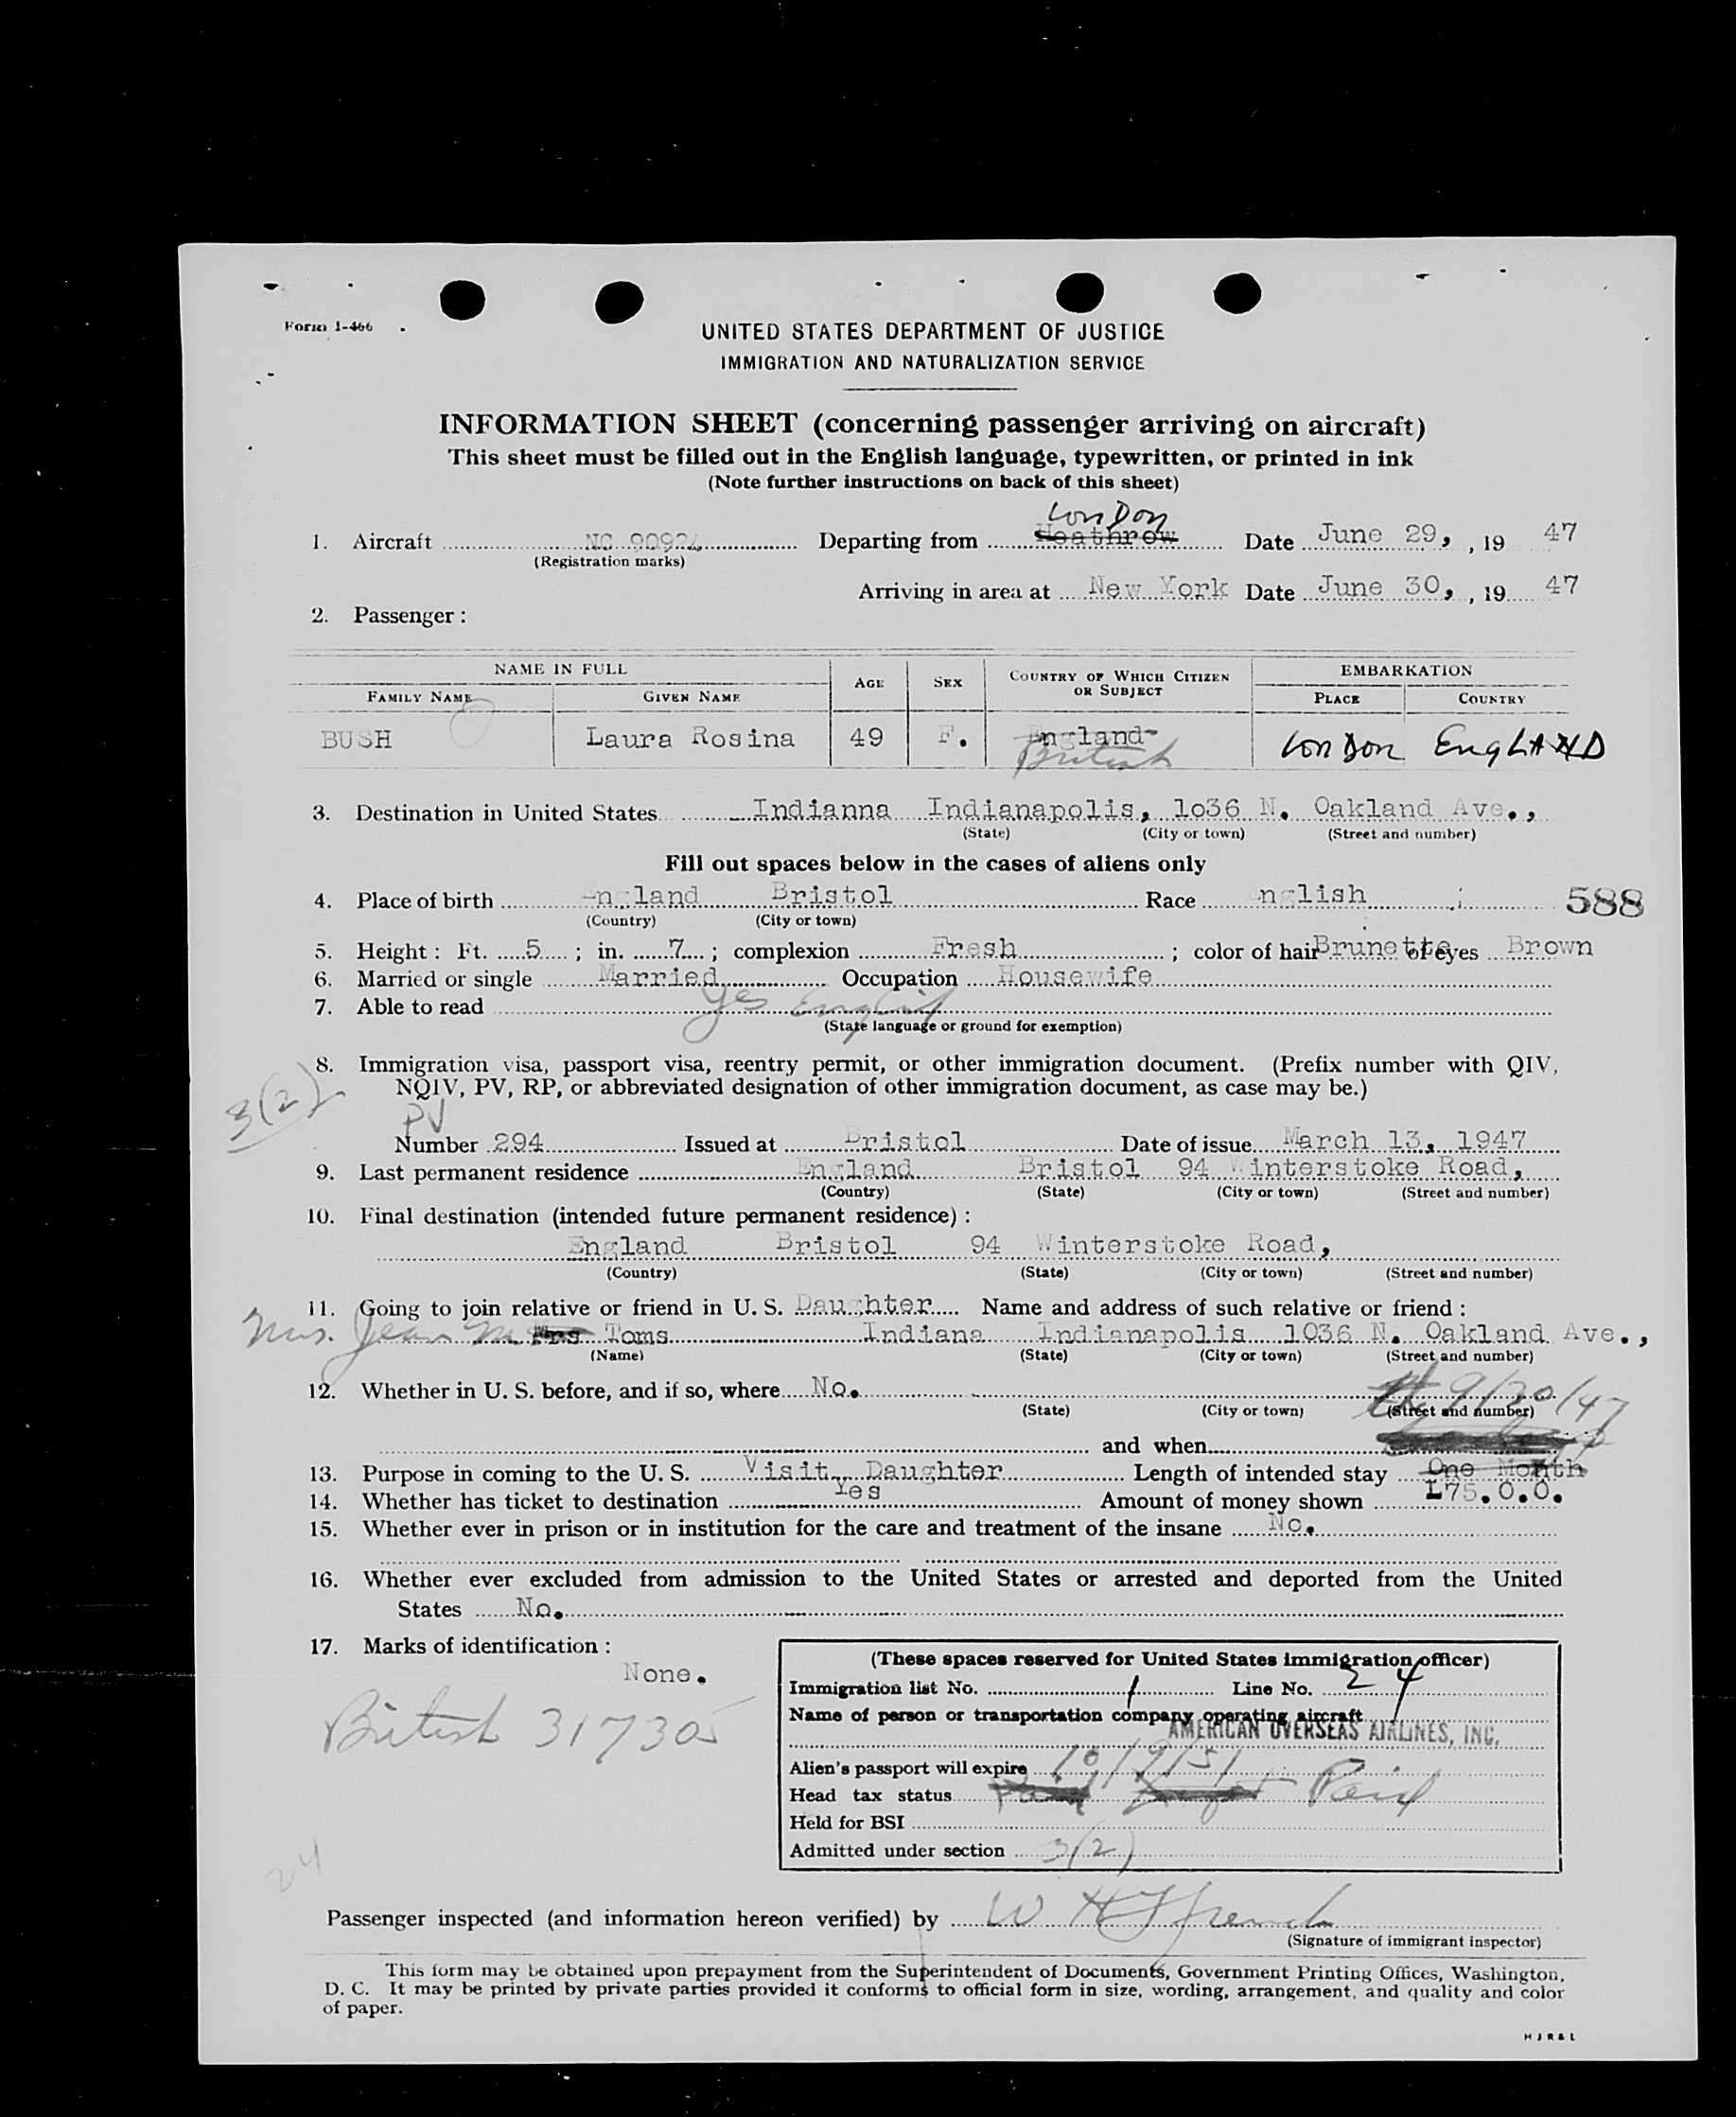 Form I-466
UNITED STATES DEPARTMENT OF JUSTICE
IMMIGRATION AND NATURALIZATION SERVICE
INFORMATION SHEET (concerning passenger arriving on aircraft)
This sheet must be filled out in the English language, typewritten, or printed in ink
(Note further instructions on back of this sheet)
London
1. Aircraft NC 90924 Departing from Heathrow Date June 29, , 19 47
(Registration marks)
Arriving in area at New York Date June 30, , 19 47
2. Passenger :
NAME IN FULL AGE SEX COUNTRY OF WHICH CITIZEN OR SUBJECT EMBARKATION
FAMILY NAME GIVEN NAME PLACE COUNTRY
BUSH Laura Rosina 49 F. England London ENGLAND
British
3. Destination in United States Indianna Indianapolis, 1o36 N. Oakland Ave.,
(State) (City or town) (Street and number)
Fill out spaces below in the cases of aliens only
4. Place of birth England Bristol Race English 588
(Country) (City or town)
5. Height : Ft. 5 ; in. 7 ; complexion Fresh ; color of hair Brunette of eyes Brown
6. Married or single Married Occupation Housewife
7. Able to read yes English
(State language or ground for exemption)
8. Immigration visa, passport visa, reentry permit, or other immigration document. (Prefix number with QIV,
NQIV, PV, RP, or abbreviated designation of other immigration document, as case may be.)
3(2)
PV
Number 294 Issued at Bristol Date of issue March 13, 1947
9. Last permanent residence England Bristol 94 Winterstoke Road,
(Country) (State) (City or town) (Street and number)
10. Final destination (intended future permanent residence) :
England Bristol 94 Winterstoke Road,
(Country) (State) (City or town) (Street and number)
11. Going to join relative or friend in U. S. Daughter Name and address of such relative or friend :
Mrs. Jean M Mrs Toms Indiana Indianapolis 1036 N. Oakland Ave.,
(Name) (State) (City or town) (Street and number)
12. Whether in U. S. before, and if so, where No. 9/30/47
(State) (City or town) (Street and number)
and when
13. Purpose in coming to the U. S. Visit Daughter Length of intended stay One Month
14. Whether has ticket to destination Yes Amount of money shown £75.0.0.
15. Whether ever in prison or in institution for the care and treatment of the insane No.
16. Whether ever excluded from admission to the United States or arrested and deported from the United
States No.
17. Marks of identification :
None.
British 317305
24
(These spaces reserved for United States immigration officer)
Immigration list No. 1 Line No. 24
Name of person or transportation company operating aircraft
AMERICAN OVERSEAS AIRLINES, INC.
Alien's passport will expire 10/9/51
Head tax status Paid
Held for BSI
Admitted under section 3(2)
Passenger inspected (and information hereon verified) by W H French
(Signature of immigrant inspector)
This form may be obtained upon prepayment from the Superintendent of Documents, Government Printing Offices, Washington,
D. C. It may be printed by private parties provided it conforms to official form in size, wording, arrangement, and quality and color
of paper.
H J R & L